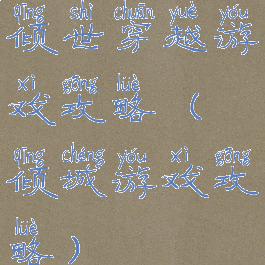 qīng shì chuān yuè yóu
倾世穿越游
xì gōng lüè
戏攻略（
qīng chéng yóu xì gōng
倾城游戏攻
lüè
略）